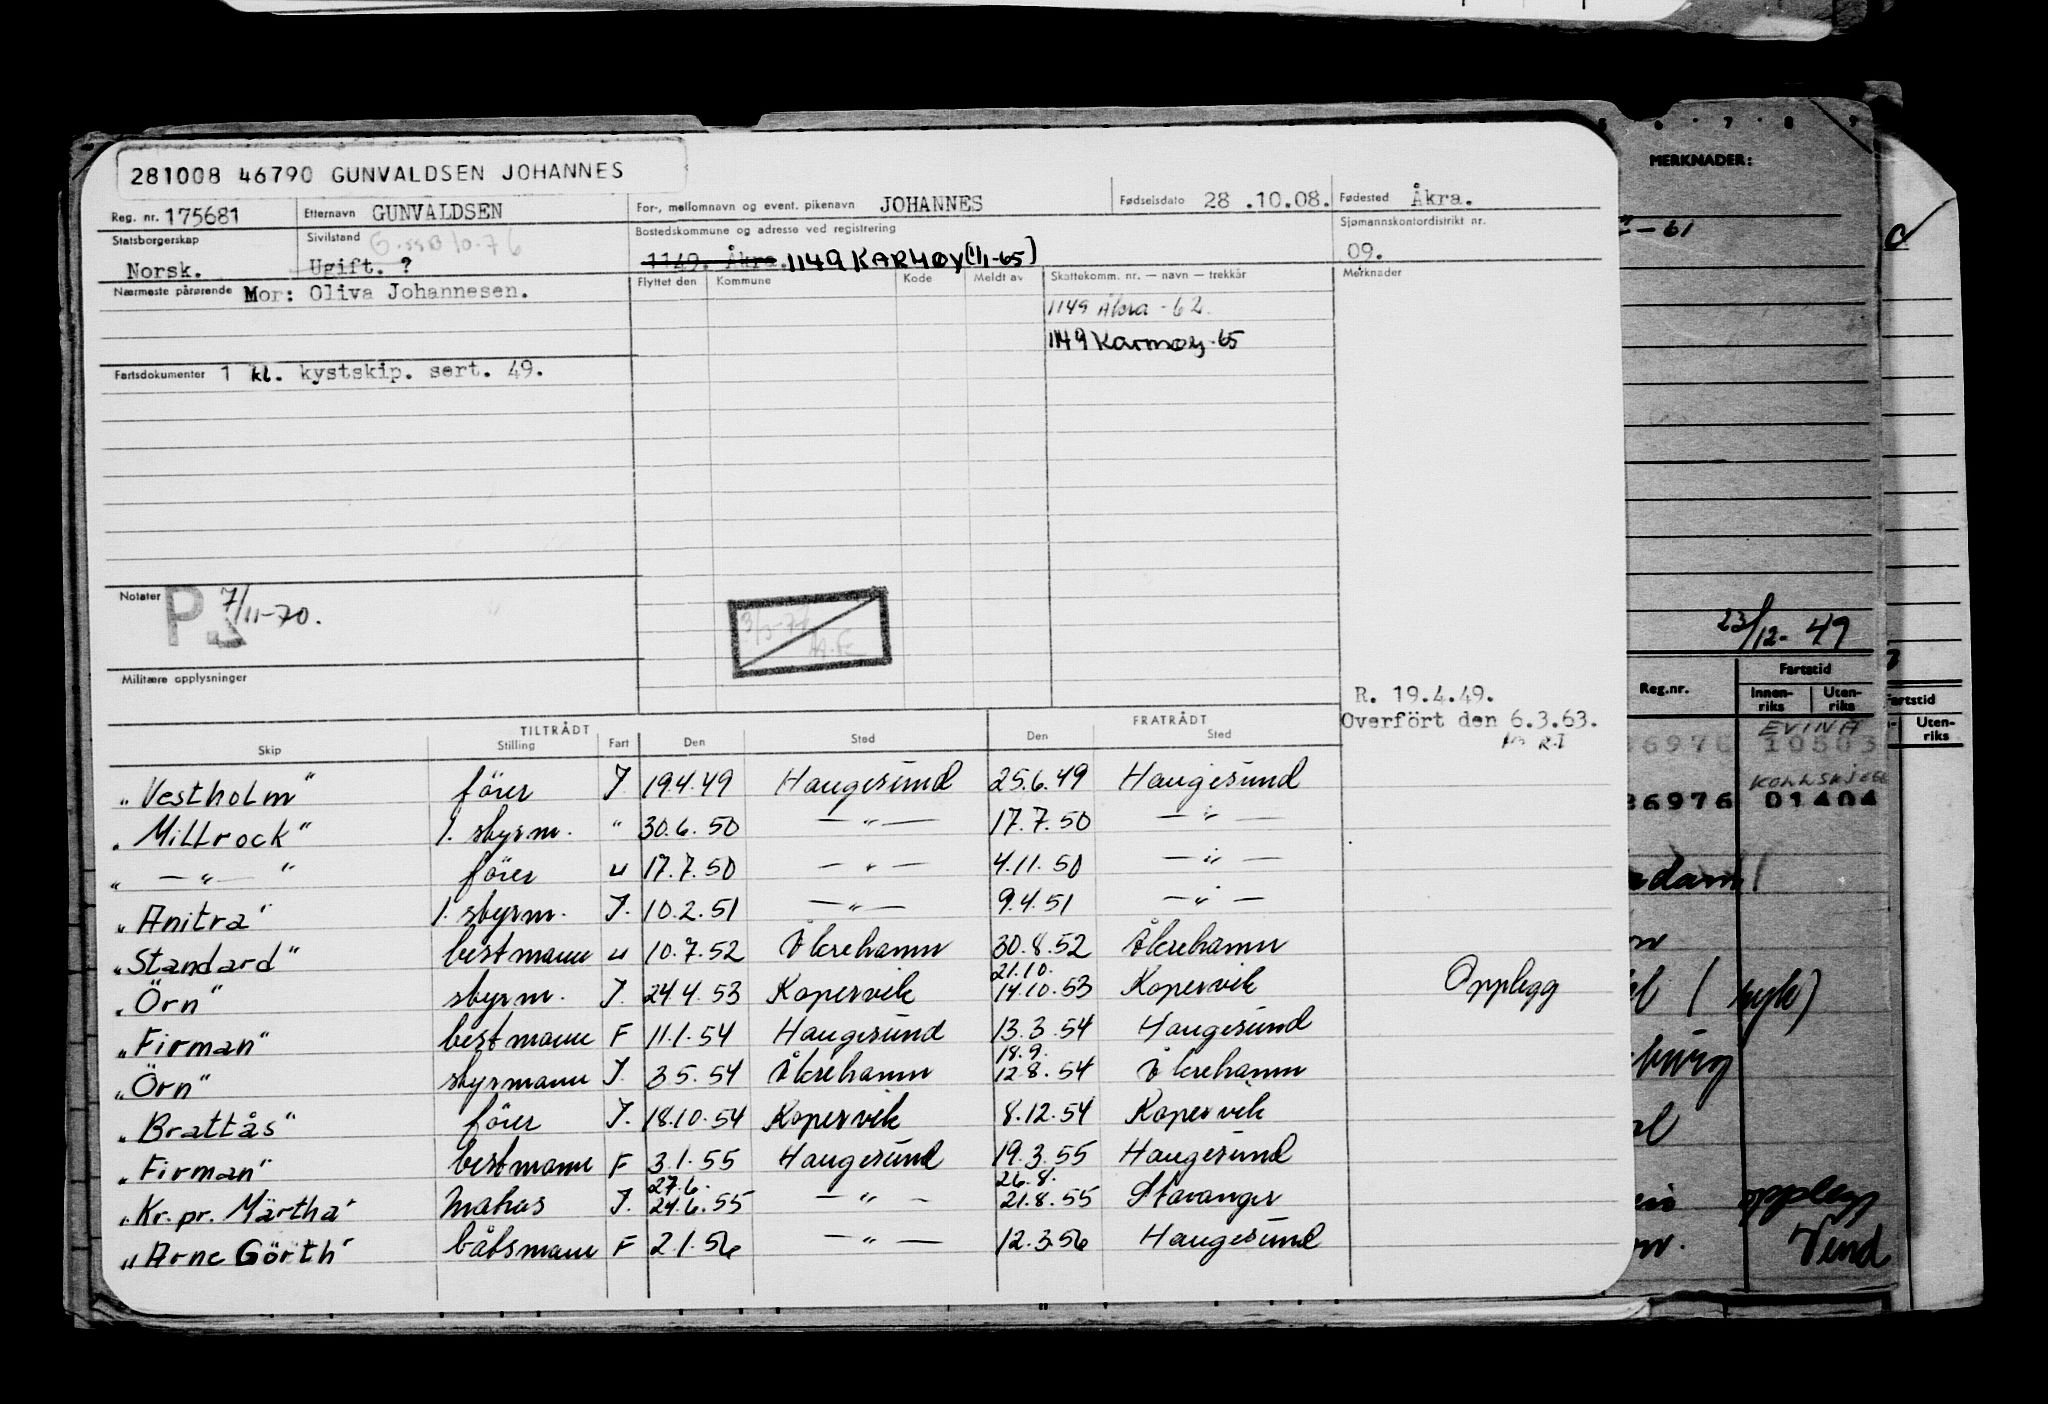 281008 46790 GUNVALDSEN JOHANNES
Reg. nr. 175681 Etternavn GUNVALDSEN For-, mellomnavn og event. pikenavn JOHANNES Fødselsdato 28 .10.08. Fødested Åkra.
Statsborgerskap Norsk. Sivilstand Ugift. ? Bostedskommune og adresse ved registrering 1149. Åkra. 1149 KARMØY (1/1-65) Sjømannskontordistrikt nr. 09.
Nærmeste pårørende Mor: Oliva Johannesen. Flyttet den Kommune Kode Meldt av Skattekomm. nr. — navn — trekkår Merknader
1149 Åkra - 62
1149 Karmøy - 65
Fartsdokumenter 1 kl. kystskip. sert. 49.
Notater P. 7/11-70.
Militære opplysninger
R. 19.4.49.
Overfört den 6.3.63.
R.I
TILTRÅDT FRATRÅDT
Skip Stilling Fart Den Sted Den Sted
"Vestholm" förer I 19.4.49 Haugesund 25.6.49 Haugesund
"Millrock" 1. styrm. " 30.6.50 — " — 17.7.50 — " —
" — " — " förer " 17.7.50 — " — 4.11.50 — " —
"Anitra" 1. styrm. I. 10.2.51 — " — 9.4.51 — " —
"Standard" bestmann " 10.7.52 Åkrehamn 30.8.52 Åkrehamn
"Örn" styrm. I. 24.4.53 Kopervik 21.10. 14.10.53 Kopervik Opplegg
"Firman" bestmann F 11.1.54 Haugesund 13.3.54 Haugesund
"Örn" styrmann I. 3.5.54 Åkrehamn 18.9. 12.8.54 Åkrehamn
"Brattås" förer I. 18.10.54 Kopervik 8.12.54 Kopervik
"Firman" bestmann F 3.1.55 Haugesund 19.3.55 Haugesund
"Kr.pr. Märtha" matros I. 27.6. 24.6.55 — " — 26.8. 21.8.55 Stavanger
"Arne Görth" båtsmann F 2.1.56 — " — 12.3.56 Haugesund
MERKNADER:
-61
23/12-49
Reg.nr. Fartstid
Innen-riks Uten-riks
EVINA
10503
36976 01404
opplegg
Vend
Fartstid
Uten-riks